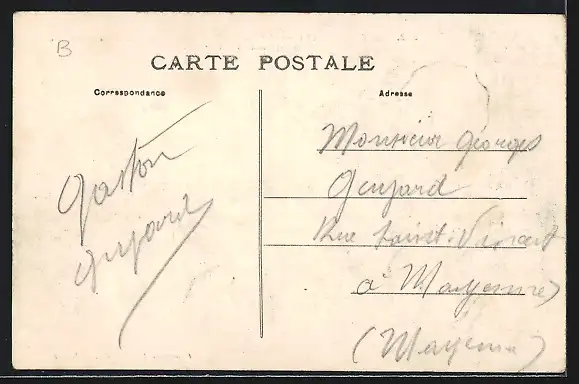 B
CARTE POSTALE
Correspondance
Adresse
Gaston
Guyard
Monsieur Georges
Guyard
Rue Saint-Vincent
à Mayenne
(Mayenne)